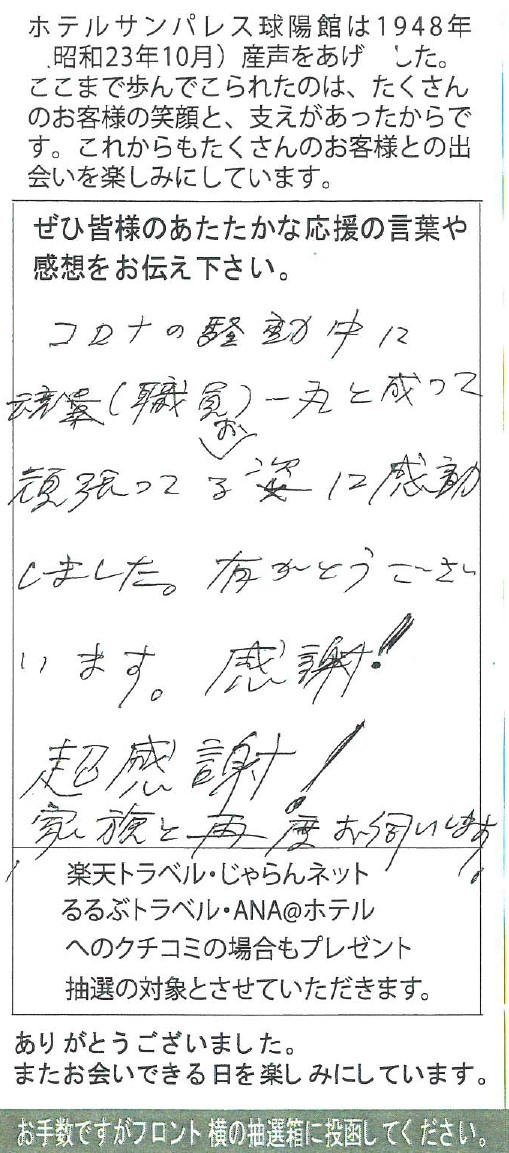 ホテルサンパレス球陽館は1948年
昭和23年10月）産声をあげ した。
ここまで歩んでこられたのは、たくさん
のお客様の笑顔と、支えがあったからで
す。これからもたくさんのお客様との出
会いを楽しみにしています。
ぜひ皆様のあたたかな応援の言葉や
感想をお伝え下さい。
コロナの騒動中に
（職員）一丸と成って
頑張っておる姿に感動
しました。有がとうござい
います。感謝!
超感謝!
家族と再度お伺いします!
楽天トラベル・じゃらんネット
るるぶトラベル・ANA@ホテル
へのクチコミの場合もプレゼント
抽選の対象とさせていただきます。
ありがとうございました。
またお会いできる日を楽しみにしています。
お手数ですがフロント横の抽選箱に投函してください。